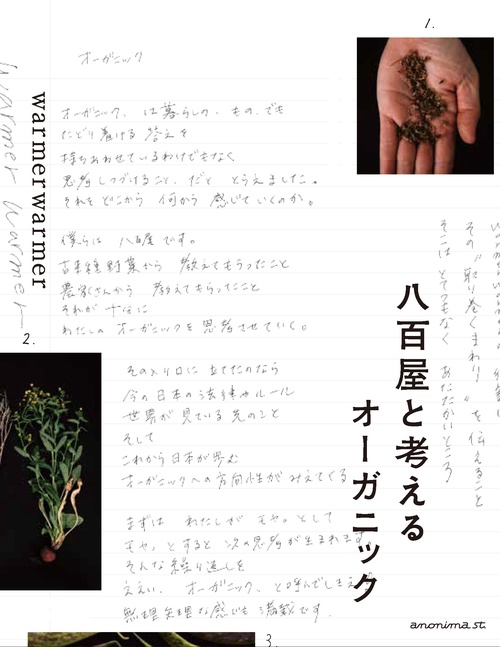 1.
オーガニック
warmerwarmer
warmer warmer
オーガニック、は暮らしの、もの、でも
たどり着ける 答えを
持ちあわせているわけでもなく
思考しつづけること、だと とらえました。
それを どこから 何から 感じていくのか。
僕らは 八百屋です。
古来種野菜から 教えてもらったこと
農家さんから 教えてもらったこと
それが 十分に
わたしの オーガニックを思考させていく。
2.
その入り口に 立てたのなら
今の日本の法律やルール
世界が見ている先のこと
そして
これから日本が歩む
オーガニックへの方向性が みえてくる
まずは わたしが モヤっとして
モヤっとすると 次の思考が生まれます。
そんな 繰り返しを
ええい、オーガニック、と呼んでしまえ
無理矢理な感じも 満載です。
その〃取り巻くまわり〃を伝えること
そこは とてつもなく あたたかいところ
八百屋と考える
オーガニック
anonima st.
3.